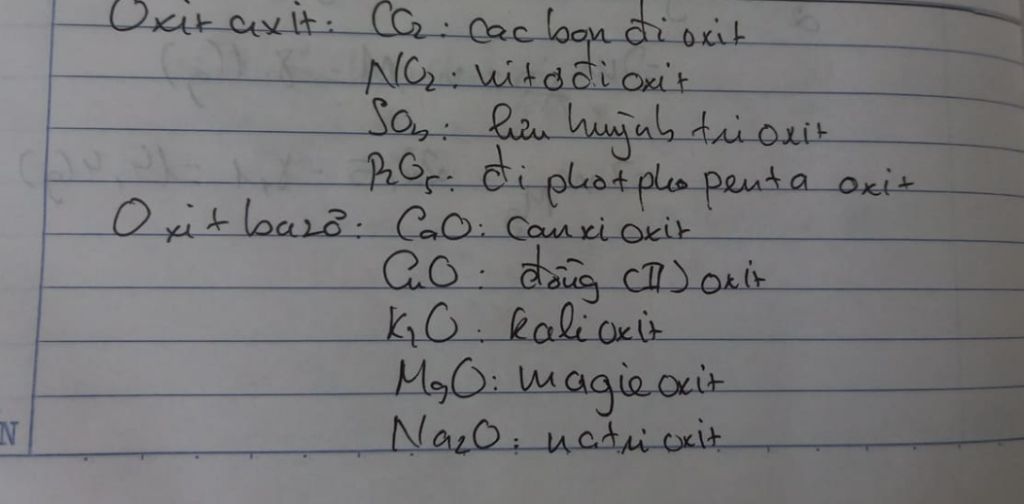 Oxit axit: CO₂: cacbon đi oxit
NO₂: nitơ đi oxit
SO₃: lưu huỳnh tri oxit
P₂O₅: đi phot pho penta oxit
Oxit bazơ: CaO: Canxi oxit
CuO: đồng (II) oxit
K₂O: kali oxit
MgO: magie oxit
Na₂O: natri oxit
N